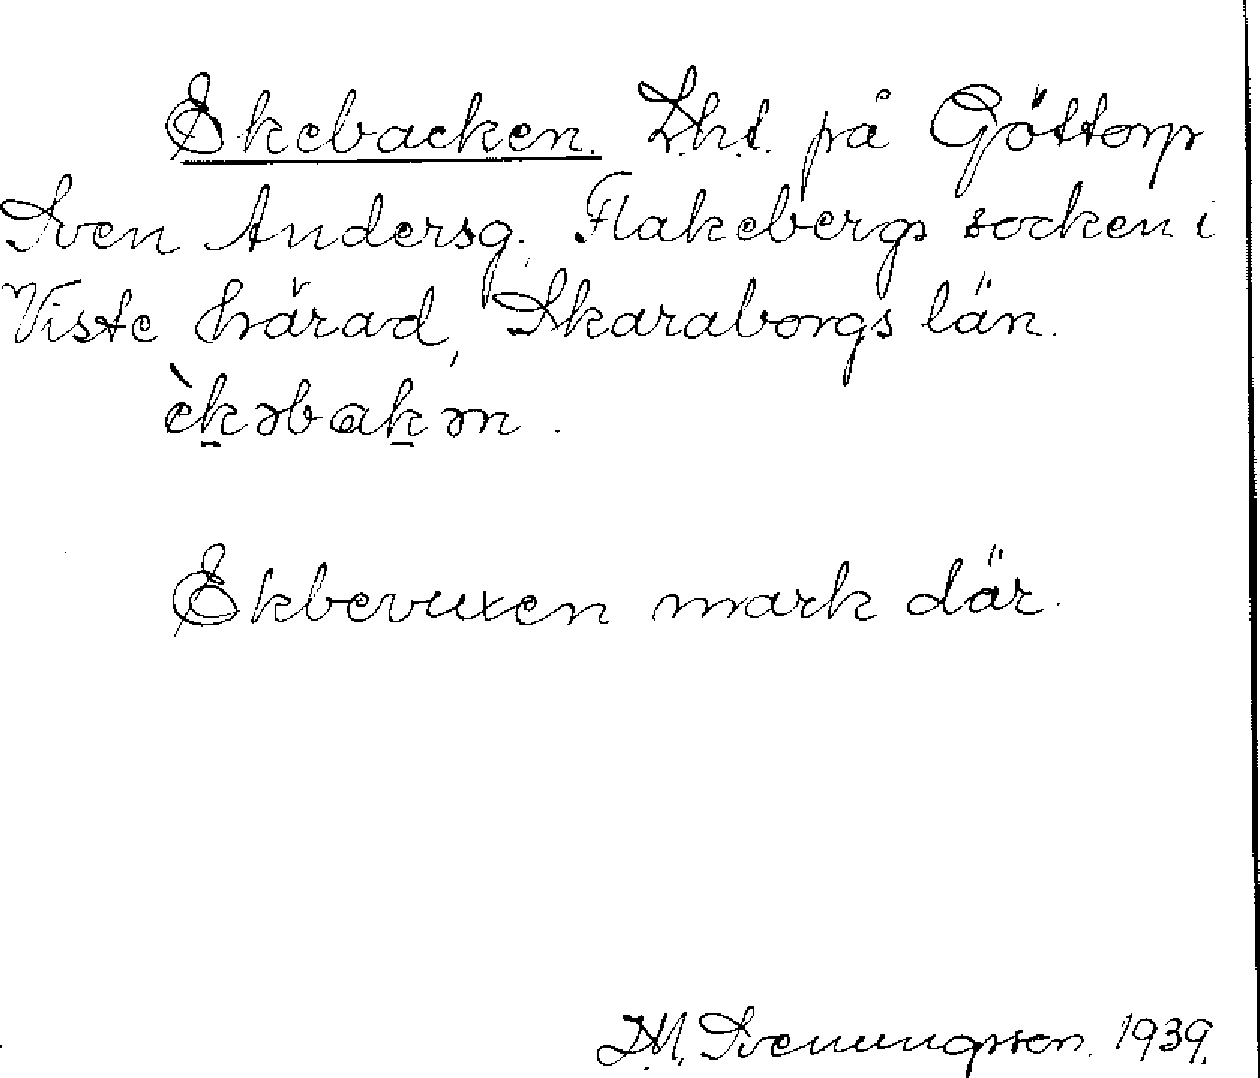 Ekebacken. Lht. på Göttorp
Sven Andersg. Flakebergs socken i
Viste härad, Skaraborgs län.
èk̲əbak̲ən.
Ekbevuxen mark där.
D.M. Svenungsson. 1939.